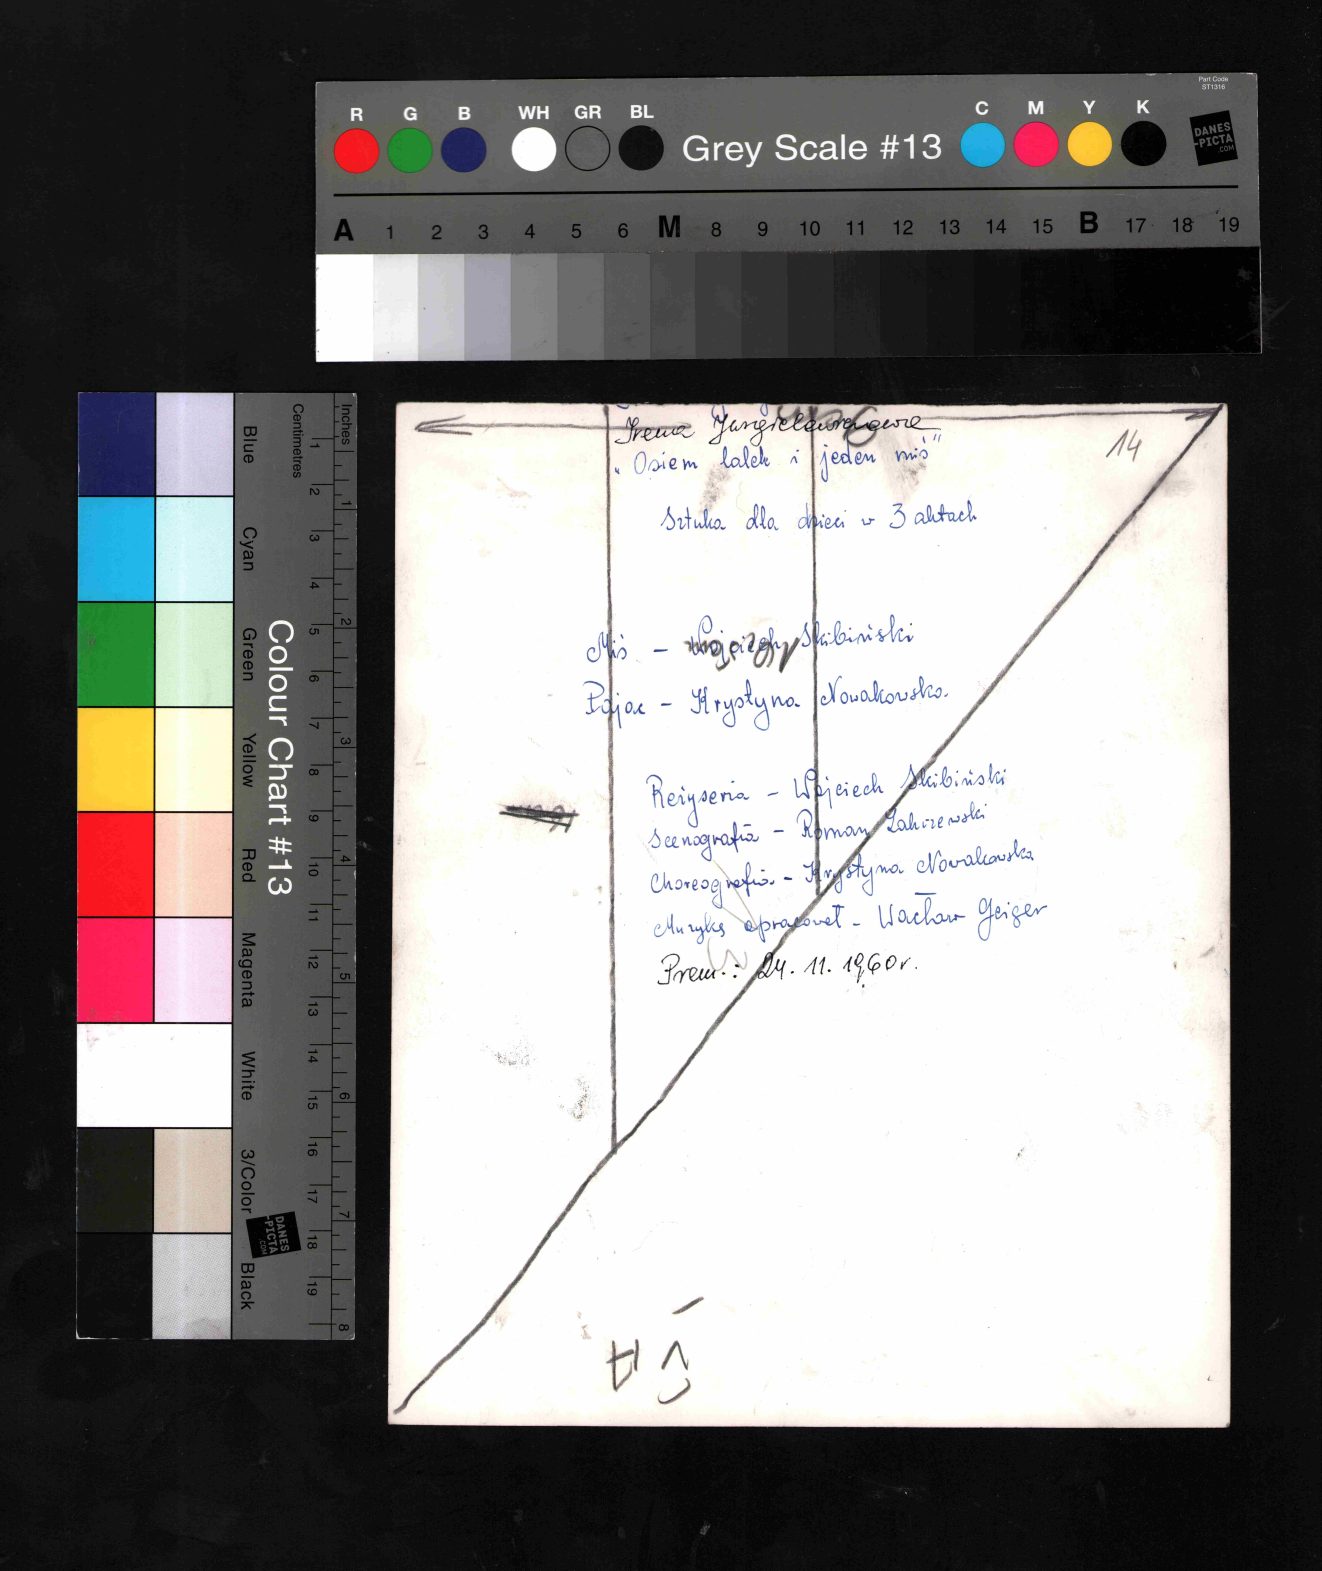 Part Code
ST1316
R G B WH GR BL Grey Scale #13 C M Y K
DANES
-PICTA
.COM
A 1 2 3 4 5 6 M 8 9 10 11 12 13 14 15 B 17 18 19
Colour Chart #13
Blue Cyan Green Yellow Red Magenta White 3/Color Black
Centimetres 1 2 3 4 5 6 7 8 9 10 11 12 13 14 15 16 17 18 19
Inches 1 2 3 4 5 6 7 8
DANES
-PICTA
.COM
14
Irena Jurgielewiczowa
„Osiem lalek i jeden miś"
Sztuka dla dzieci w 3 aktach
Miś – Wojciech Skibiński
Pajac – Krystyna Nowakowska
Reżyseria – Wojciech Skibiński
Scenografia – Roman
Choreografia – Krystyna Nowakowska
Muzykę opracował – Wacław Geiger
Prem.: 24. 11. 1960 r.